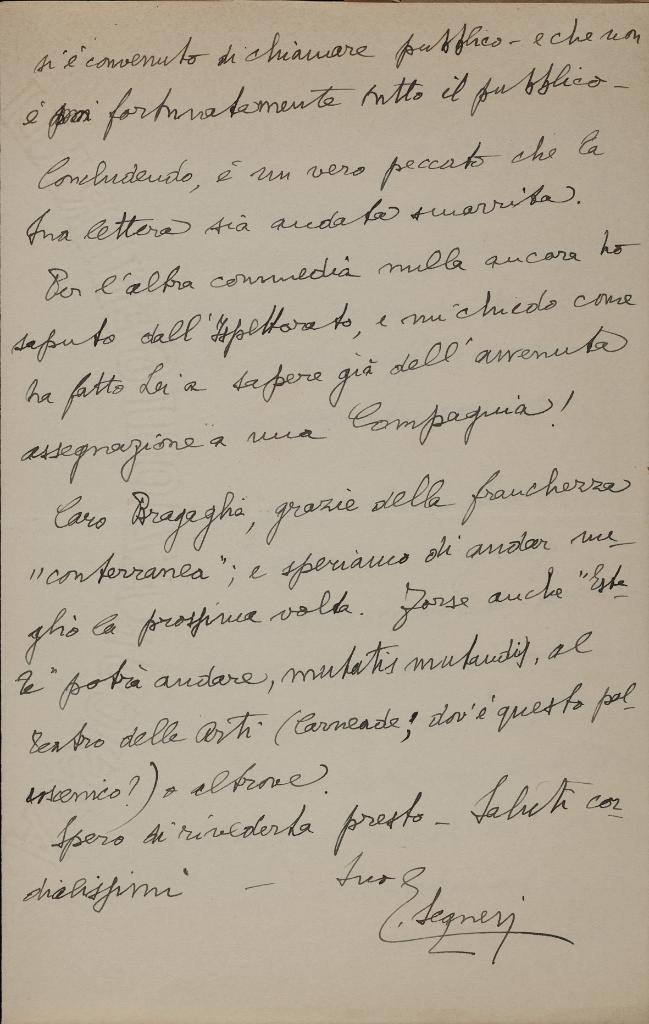 si è convenuto di chiamare pubblico - e che non
è poi fortunatamente tutto il pubblico -
Concludendo, è un vero peccato che la
Sua lettera sia andata smarrita.
Per l'altra commedia nulla ancora ho
saputo dall'Ispettorato, e mi chiedo come
ha fatto Lei a sapere già dell'avvenuta
assegnazione a una Compagnia!
Caro Bragaglia, grazie della franchezza
"conterranea"; e speriamo di andar me-
glio la prossima volta. Forse anche "Este-
" potrà andare, mutatis mutandis, al
Teatro delle Arti (Carneade; dov'è questo pal-
coscenico?) o altrove.
Spero di rivederLa presto - Saluti cor-
dialissimi -
Suo
E. Segneri